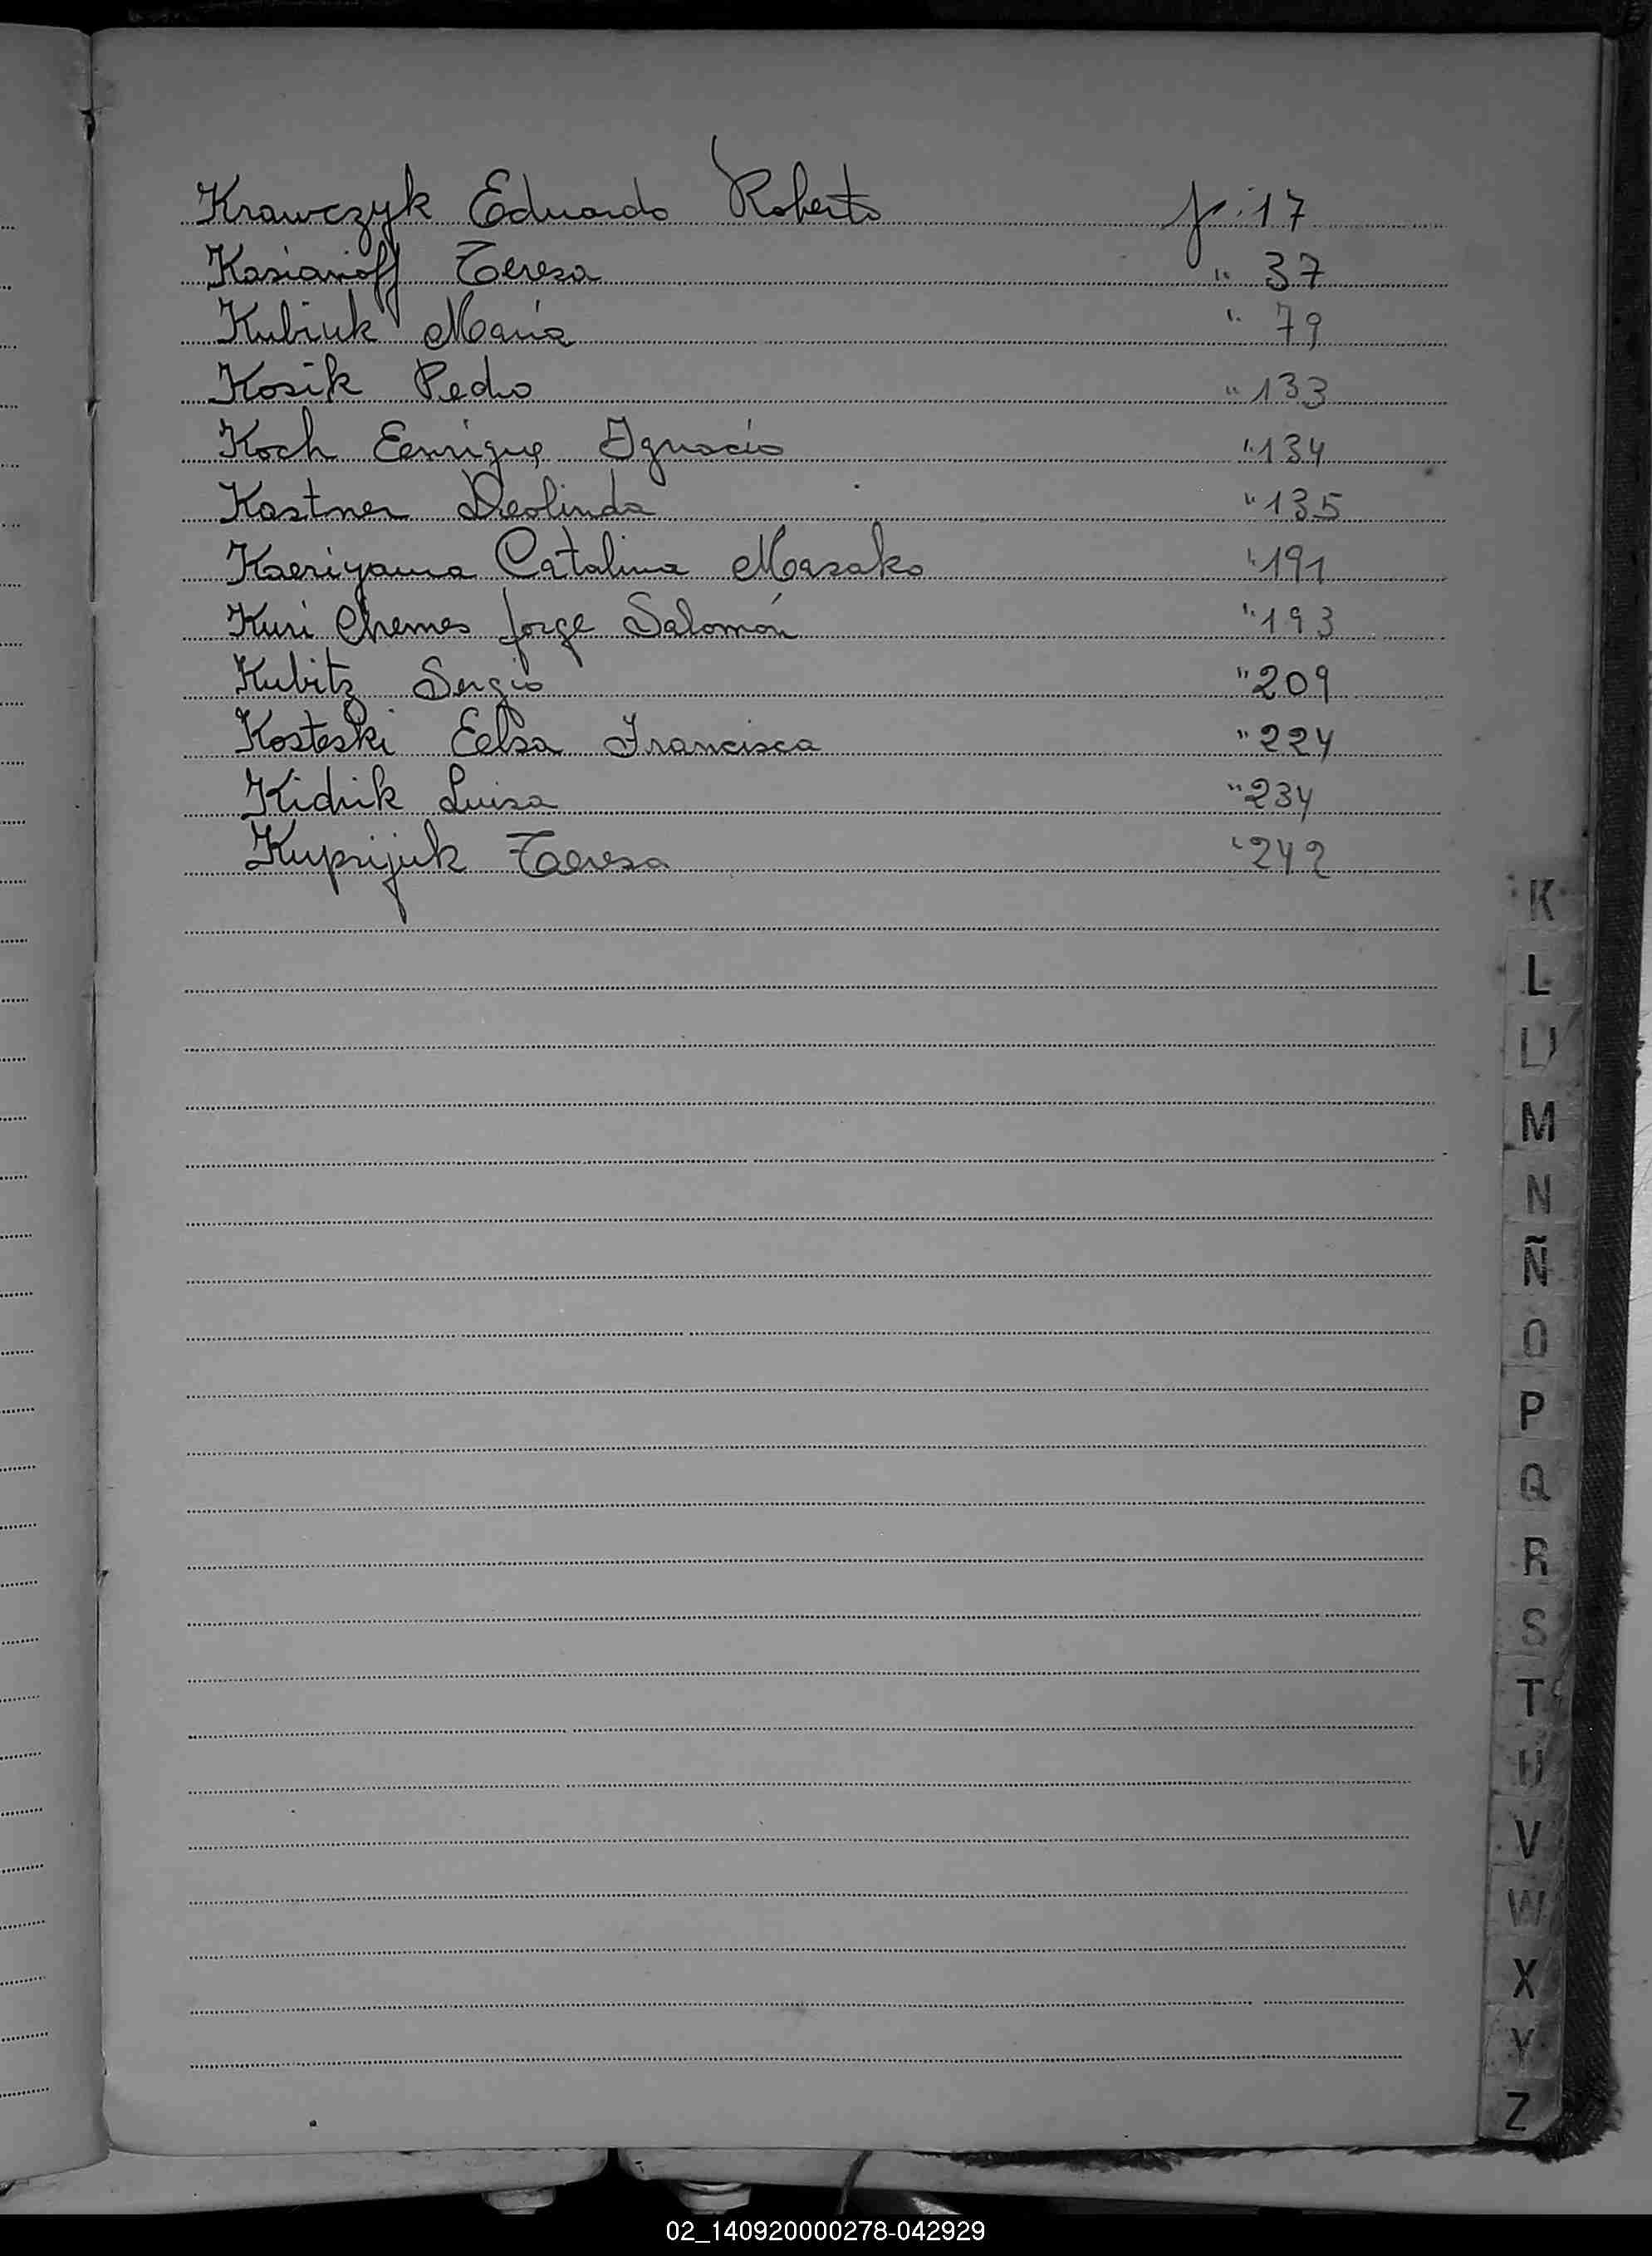 Krawczyk Eduardo Roberto f. 17
Kasianoff Teresa " 37
Kubiuk María " 79
Kosik Pedro " 133
Koch Enrique Ignacio " 134
Kastner Deolinda " 135
Kaeriyama Catalina Masako " 191
Kuri Chemes Jorge Salomón " 193
Kubitz Sergio " 209
Kosteski Elsa Francisca " 224
Kidrik Luisa " 234
Kuprijuk Teresa " 242
K
L
M
N
Ñ
O
P
Q
R
S
T
U
V
W
X
Y
Z
02_140920000278-042929